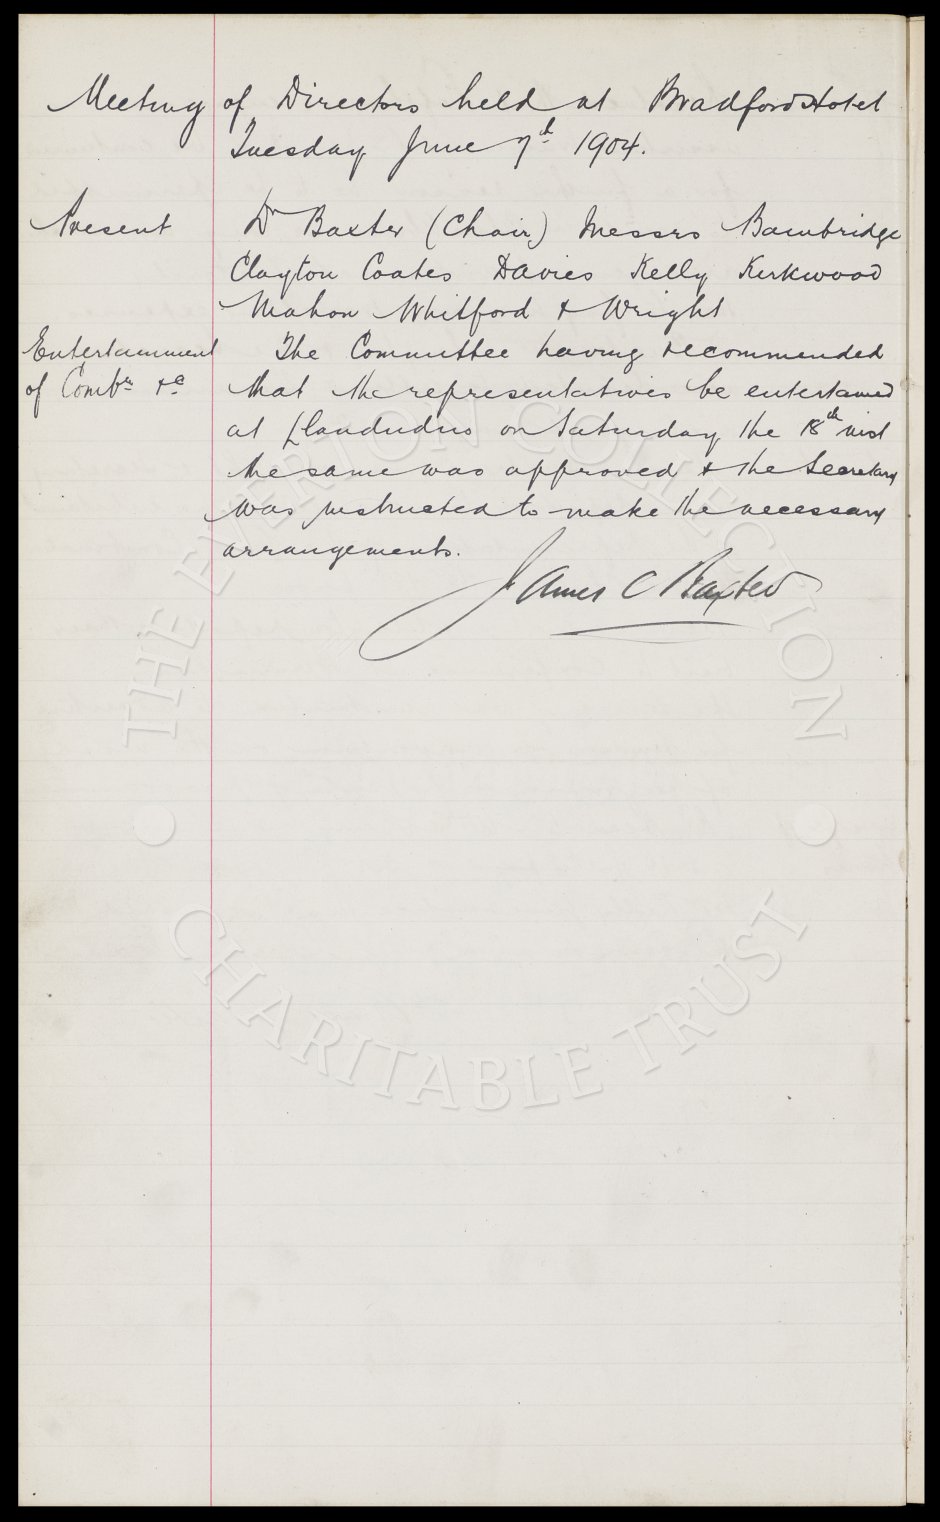 Meeting of Directors held at Bradford Hotel
Tuesday June 7th 1904.
Present Dr Baxter (Chair) Messrs Bainbridge
Clayton Coates Davies Kelly Kirkwood
Mahon Whitford & Wright
Entertainment The Committee having recommended
of Combn &c that the representatives be entertained
at Llandudno on Saturday the 18th inst
the same was approved & the Secretary
was instructed to make the necessary
arrangements.
James C Baxter
THE EVERTON COLLECTION
CHARITABLE TRUST